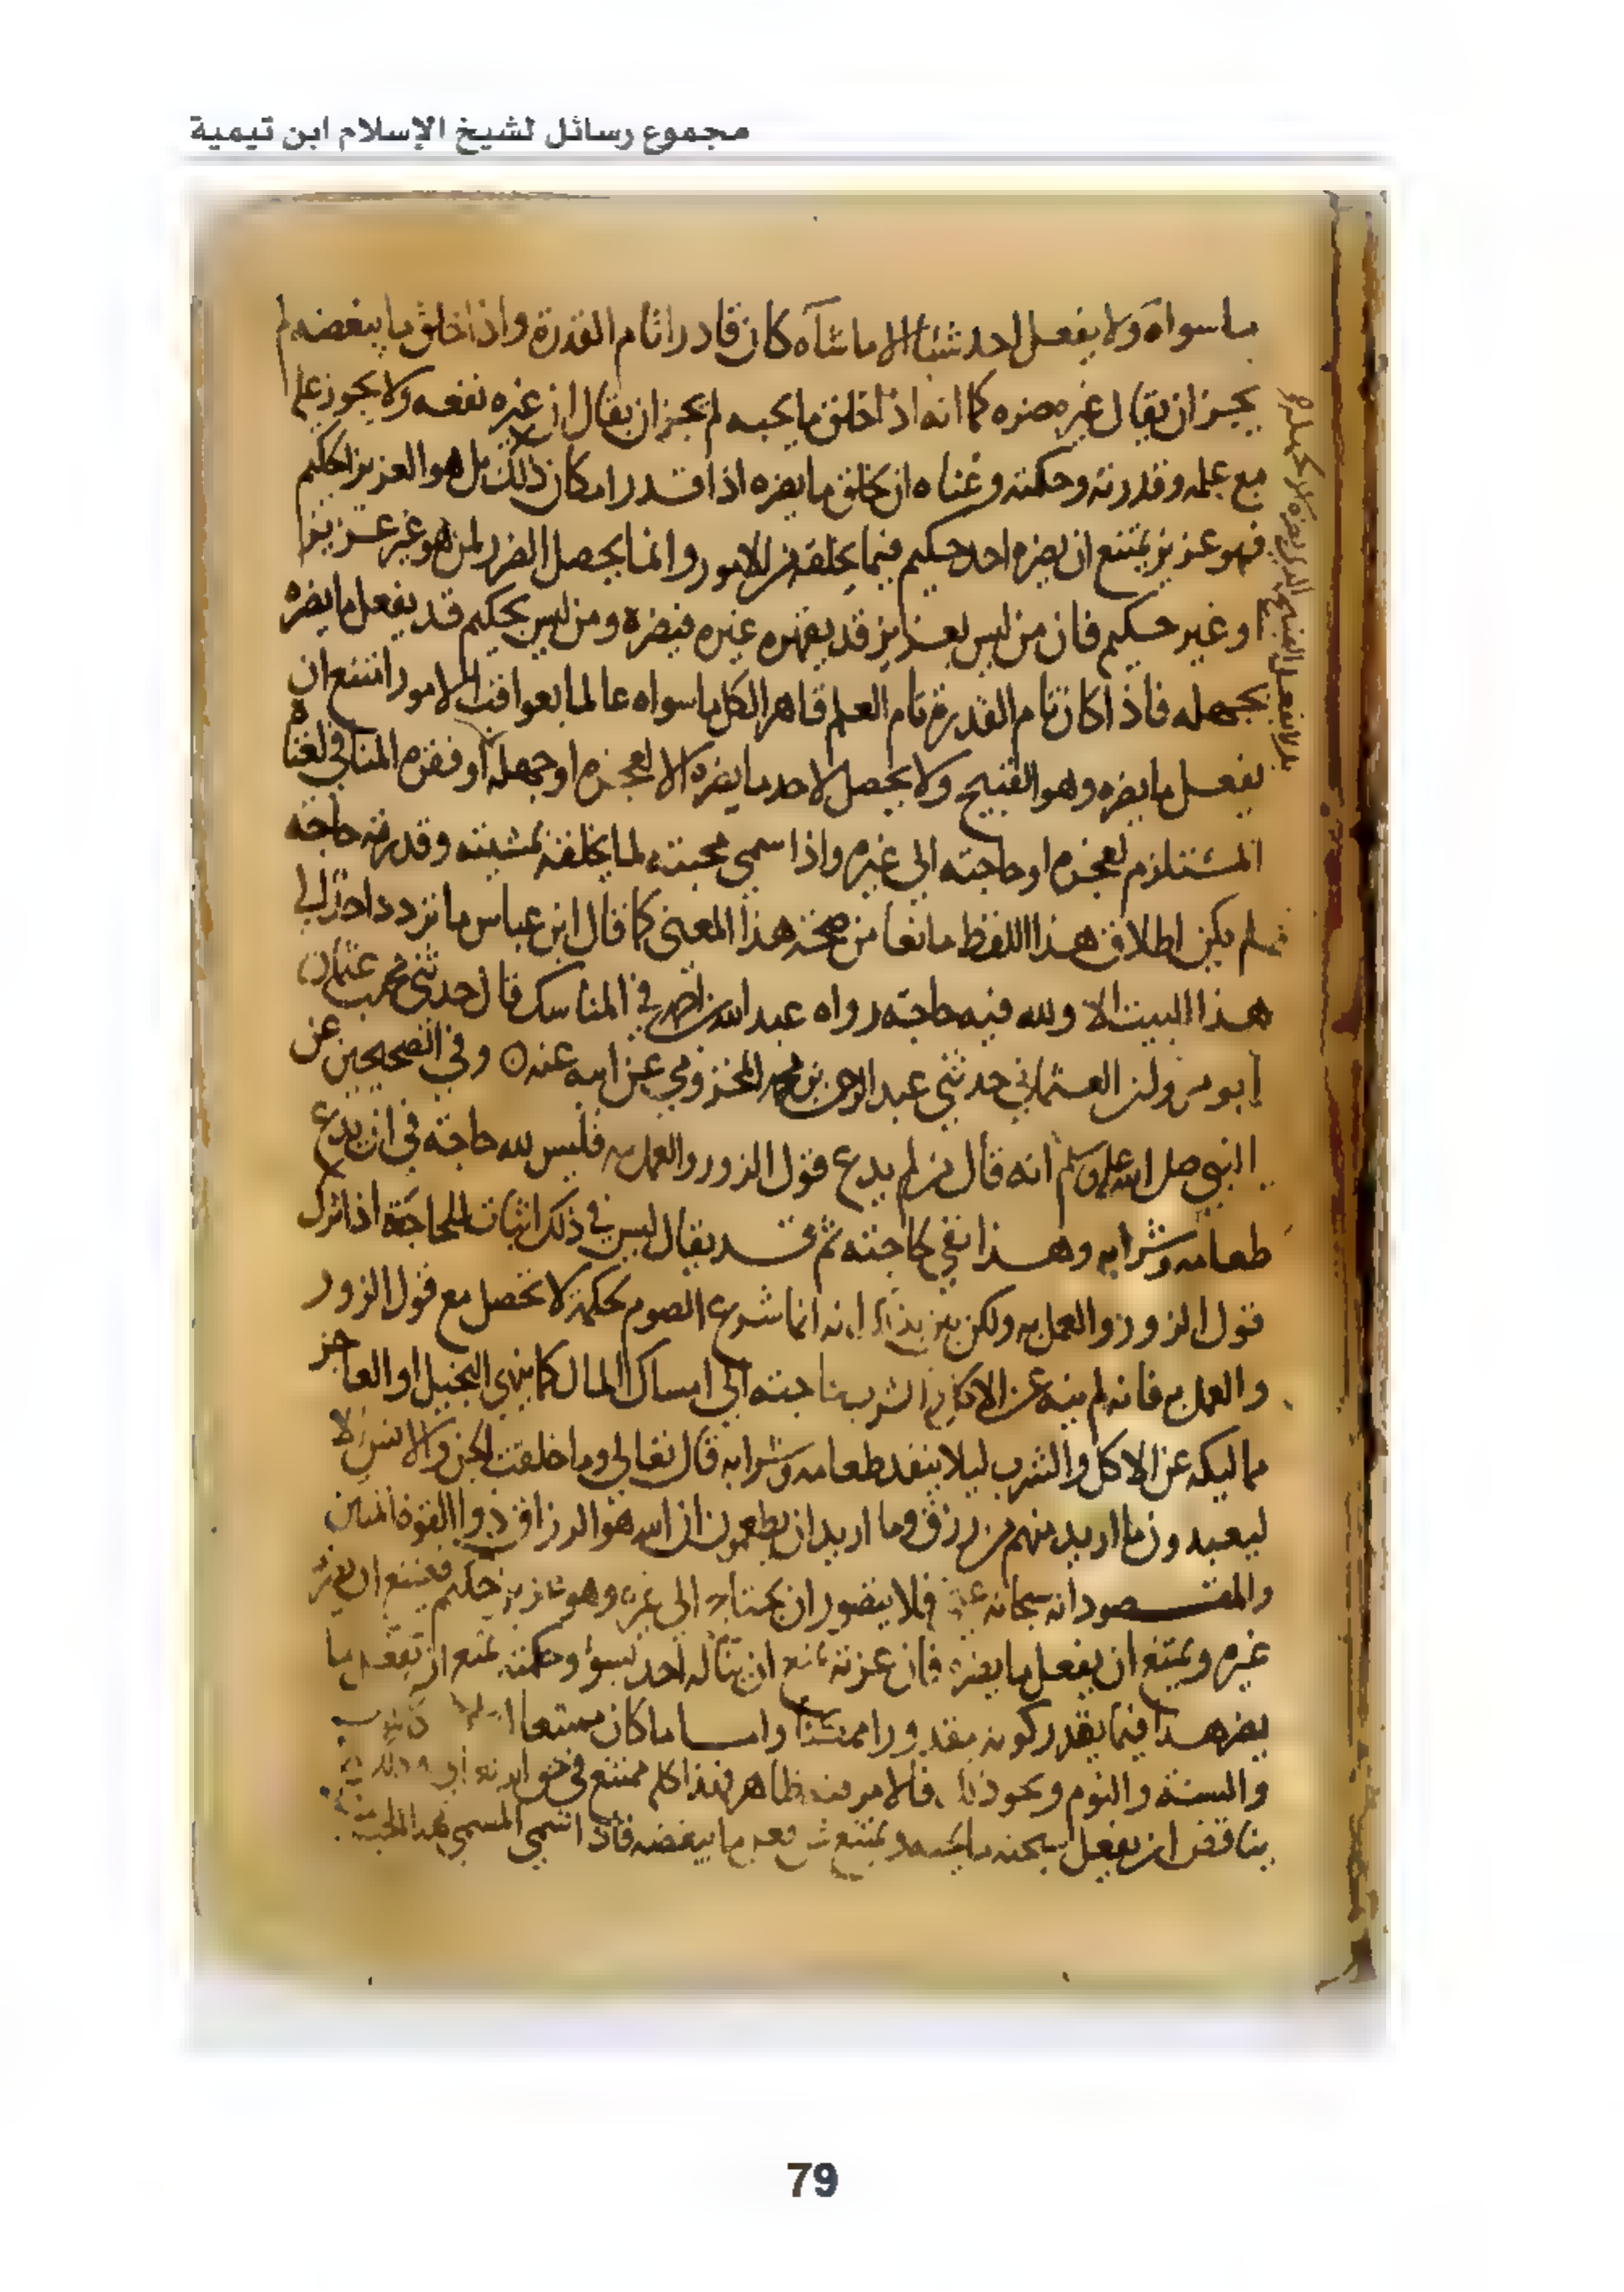 مجموع رسائل لشيخ الإسلام ابن تيمية
ما سواه ولا يفعل احد شيئا الا ما شاه كان قادرا تام القدرة واذا خلق ما يبغضه لم
يجز ان يقال غيره ضره كما انه اذا خلق ما يحبه لم يجز ان يقال ان غيره نفعه ولا يجوز
مع علمه وقدرته وحكمته وغناه ان يخلق ما يضره اذا قدر امكان ذلك بل هو العزيز الحكيم
فهو عزيز يمتنع ان يضره احد حكيم فيما يخلقه من الامور وانما يحصل الضرر لمن هو غير عزيز
او غير حكيم فان من ليس بعزيز قد يقهره غيره فيضره ومن ليس بحكيم قد يفعل ما يضره
بجهله فاذا كان تام القدرة تام العلم قاهرا لكل ما سواه عالما بعواقب الامور امتنع ان
يفعل ما يضره وهو القبيح ولا يحصل لاحد ما يضره الا لعجزه او جهله او فقره المنافي لغناه
المستلزم لعجزه او حاجته الى غيره واذا سمى محبته لما يخلقه بمشيئته وقدرته حاجة
لم يكن اطلاق هذا اللفظ مانعا من صحة هذا المعنى كما قال ابن عباس ما تردد احد الى
هذا البيت الا ولله فيه حاجة رواه عبد الله بن احمد في المناسك قال حدثني
ابو مروان العثماني حدثني عبد الرحمن بن محمد المخزومي عن ابيه عنه وفي الصحيحين عن
النبي صلى الله عليه وسلم انه قال من لم يدع قول الزور والعمل به فليس لله حاجة في ان يدع
طعامه وشرابه وهذا نفي لحاجته ثم قد يقال ليس في ذلك اثبات للحاجة اذا ترك
قول الزور والعمل به ولكن انه انما شرع الصوم لحكمة لا تحصل مع قول الزور
والعمل به فانه لم ينه عن الاكل والشرب لحاجته الى امساك المال كما ينهى البخيل او العاجز
مماليكه عن الاكل والشرب ليلا ينفد طعامه وشرابه قال تعالى وما خلقت الجن والانس الا
ليعبدون ما اريد منهم من رزق وما اريد ان يطعمون ان الله هو الرزاق ذوا القوة المتين
والمقصود انه سبحانه غني فلا يتصور ان يحتاج الى غيره وهو عزيز حكيم فيمتنع ان يضره
غيره ويمتنع ان يفعل ما يضره فان عزته تمنع ان يناله احد بسوء وحكمته تمنع ان يفعل ما
يضر هذا فيما يقدر كونه مقدورا ممكنا واما ما كان ممتنعا
والسنة والنوم ونحو ذلك فالامر فيه ظاهر فهذا كله ممتنع في حق
يناقض ان يفعل ويمتنع ما يبغضه فاذا سمى المسمي هذا
79